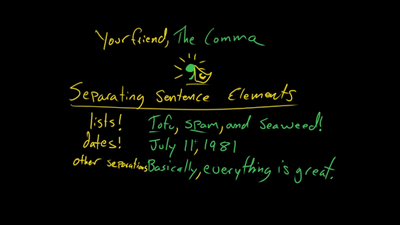 Your friend, The Comma
Separating Sentence Elements
lists! Tofu, spam, and seaweed!
dates! July 11, 1981
other separations Basically, everything is great.